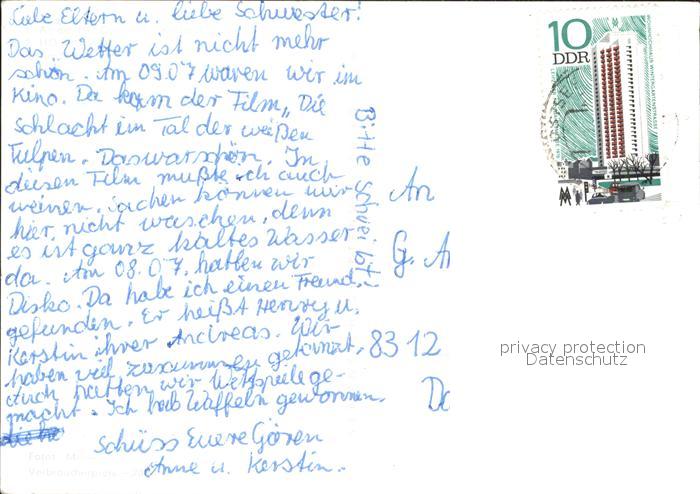 Liebe Eltern u. liebe Schwester!
Das Wetter ist nicht mehr
schön. Am 09.07 waren wir im
Kino. Da kam der Film „Die
Schlacht im Tal der weißen
Tulpen. Das war schön. In
diesen Film mußte ich auch
weinen. Sachen können wir
hier nicht waschen, denn
es ist ganz kaltes Wasser
da. Am 08.07. hatten wir
Disko. Da habe ich einen Freund
gefunden. Er heißt Henry u.
Kerstin ihrer Andreas. Wir
haben viel zusammen getanzt.
Auch hatten wir Wettspiele ge-
macht. Ich hab Waffeln gewonnen.
Schüss Euere Gören
Anne u. Kerstin.
Bitte schreibt!
An
G. A
8312
Do
10
DDR
MM
privacy protection
Datenschutz